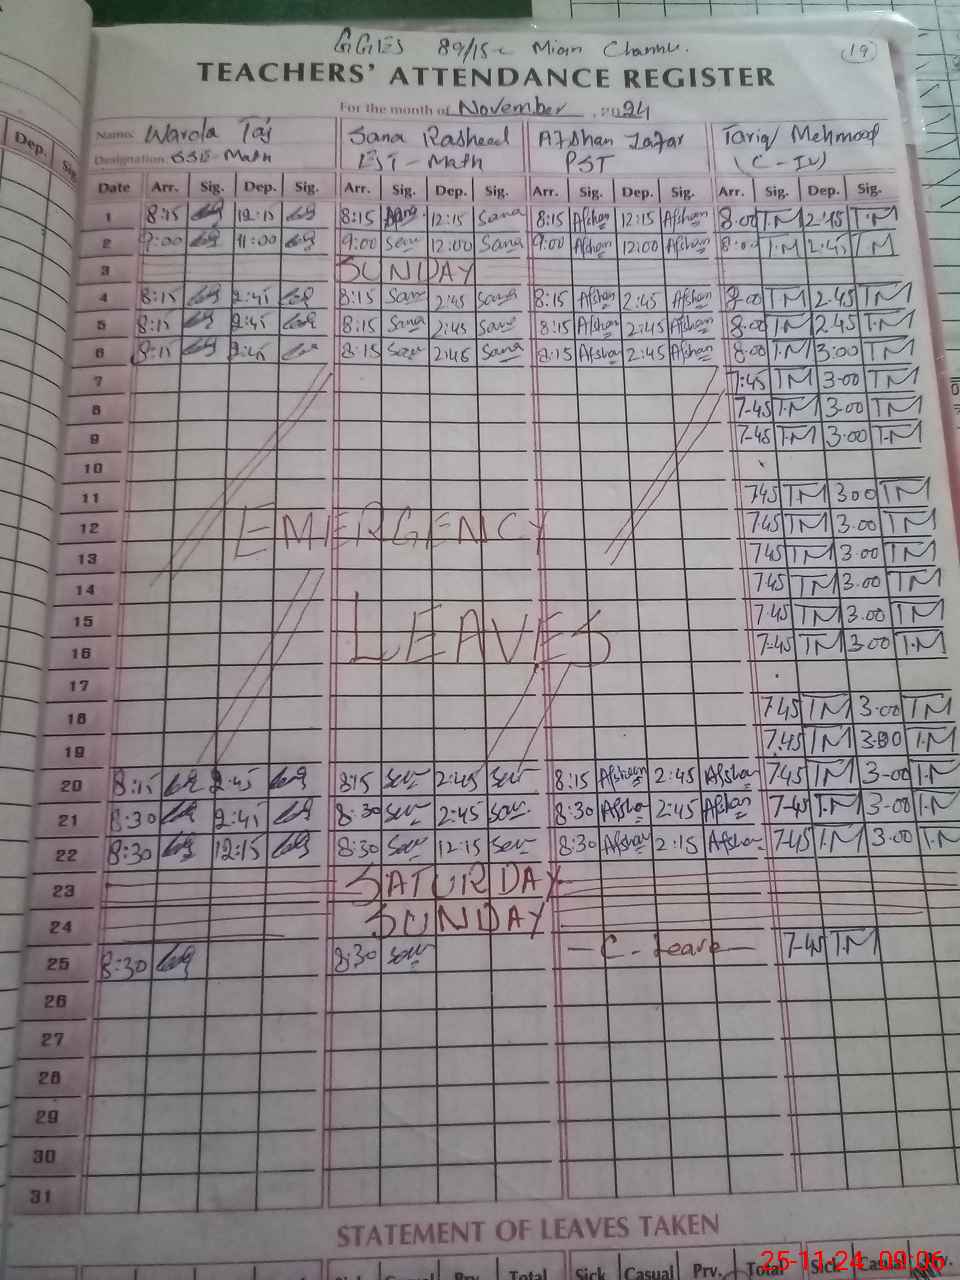 GGES 89/15-L Mian Channu. 19
TEACHERS' ATTENDANCE REGISTER
For the month of November 2024
Name: Warda Taj Sana Rasheed Afshan Zafar Tariq Mehmood
Designation: SSE-Math EST-Math PST (C-IV)
Date Arr. Sig. Dep. Sig. Arr. Sig. Dep. Sig. Arr. Sig. Dep. Sig. Arr. Sig. Dep. Sig.
1 8:15 12:15 8:15 Sana 12:15 Sana 8:15 Afshan 12:15 Afshan 8:00 T.M 2:45 T.M
2 9:00 11:00 9:00 Sana 12:00 Sana 9:00 Afshan 12:00 Afshan 8:00 T.M 2:45 T.M
3 SUNDAY
4 8:15 2:45 8:15 Sana 2:45 Sana 8:15 Afshan 2:45 Afshan 8:00 TM 2.45 TM
5 8:15 2:45 8:15 Sana 2:45 Sana 8:15 Afshan 2:45 Afshan 8:00 T.M 2.45 T.M
6 8:15 2:45 8:15 Sana 2:45 Sana 8:15 Afshan 2:45 Afshan 8:00 T.M 3:00 TM
7 7:45 TM 3.00 TM
8 7-45 T.M 3.00 TM
9 7-45 T.M 3.00 T.M
10
11 745 TM 300 TM
12 EMERGENCY 7.45 TM 3.00 TM
13 7.45 TM 3.00 TM
14 7.45 TM 3.00 TM
15 LEAVES 7.45 TM 3.00 TM
16 7-45 TM 3.00 T.M
17
18 7.45 TM 3.00 TM
19 7.45 TM 3.00 T.M
20 8:15 2:45 8:15 2:45 8:15 Afshan 2:45 Afshan 745 TM 3-00 T.M
21 8:30 2:45 8:30 2:45 8:30 Afshan 2:45 Afshan 7-45 T.M 3.00 T.M
22 8:30 12:15 8:30 12:15 8:30 Afshan 2:15 Afshan 7-45 T.M 3.00 T.M
23 SATURDAY
24 SUNDAY
25 8:30 8:30 - C - Leave - 7-45 T.M
26
27
28
29
30
31
STATEMENT OF LEAVES TAKEN
Sick Casual Prv. Total Sick Casual Prv.
25-11-24 09:06
Dep.